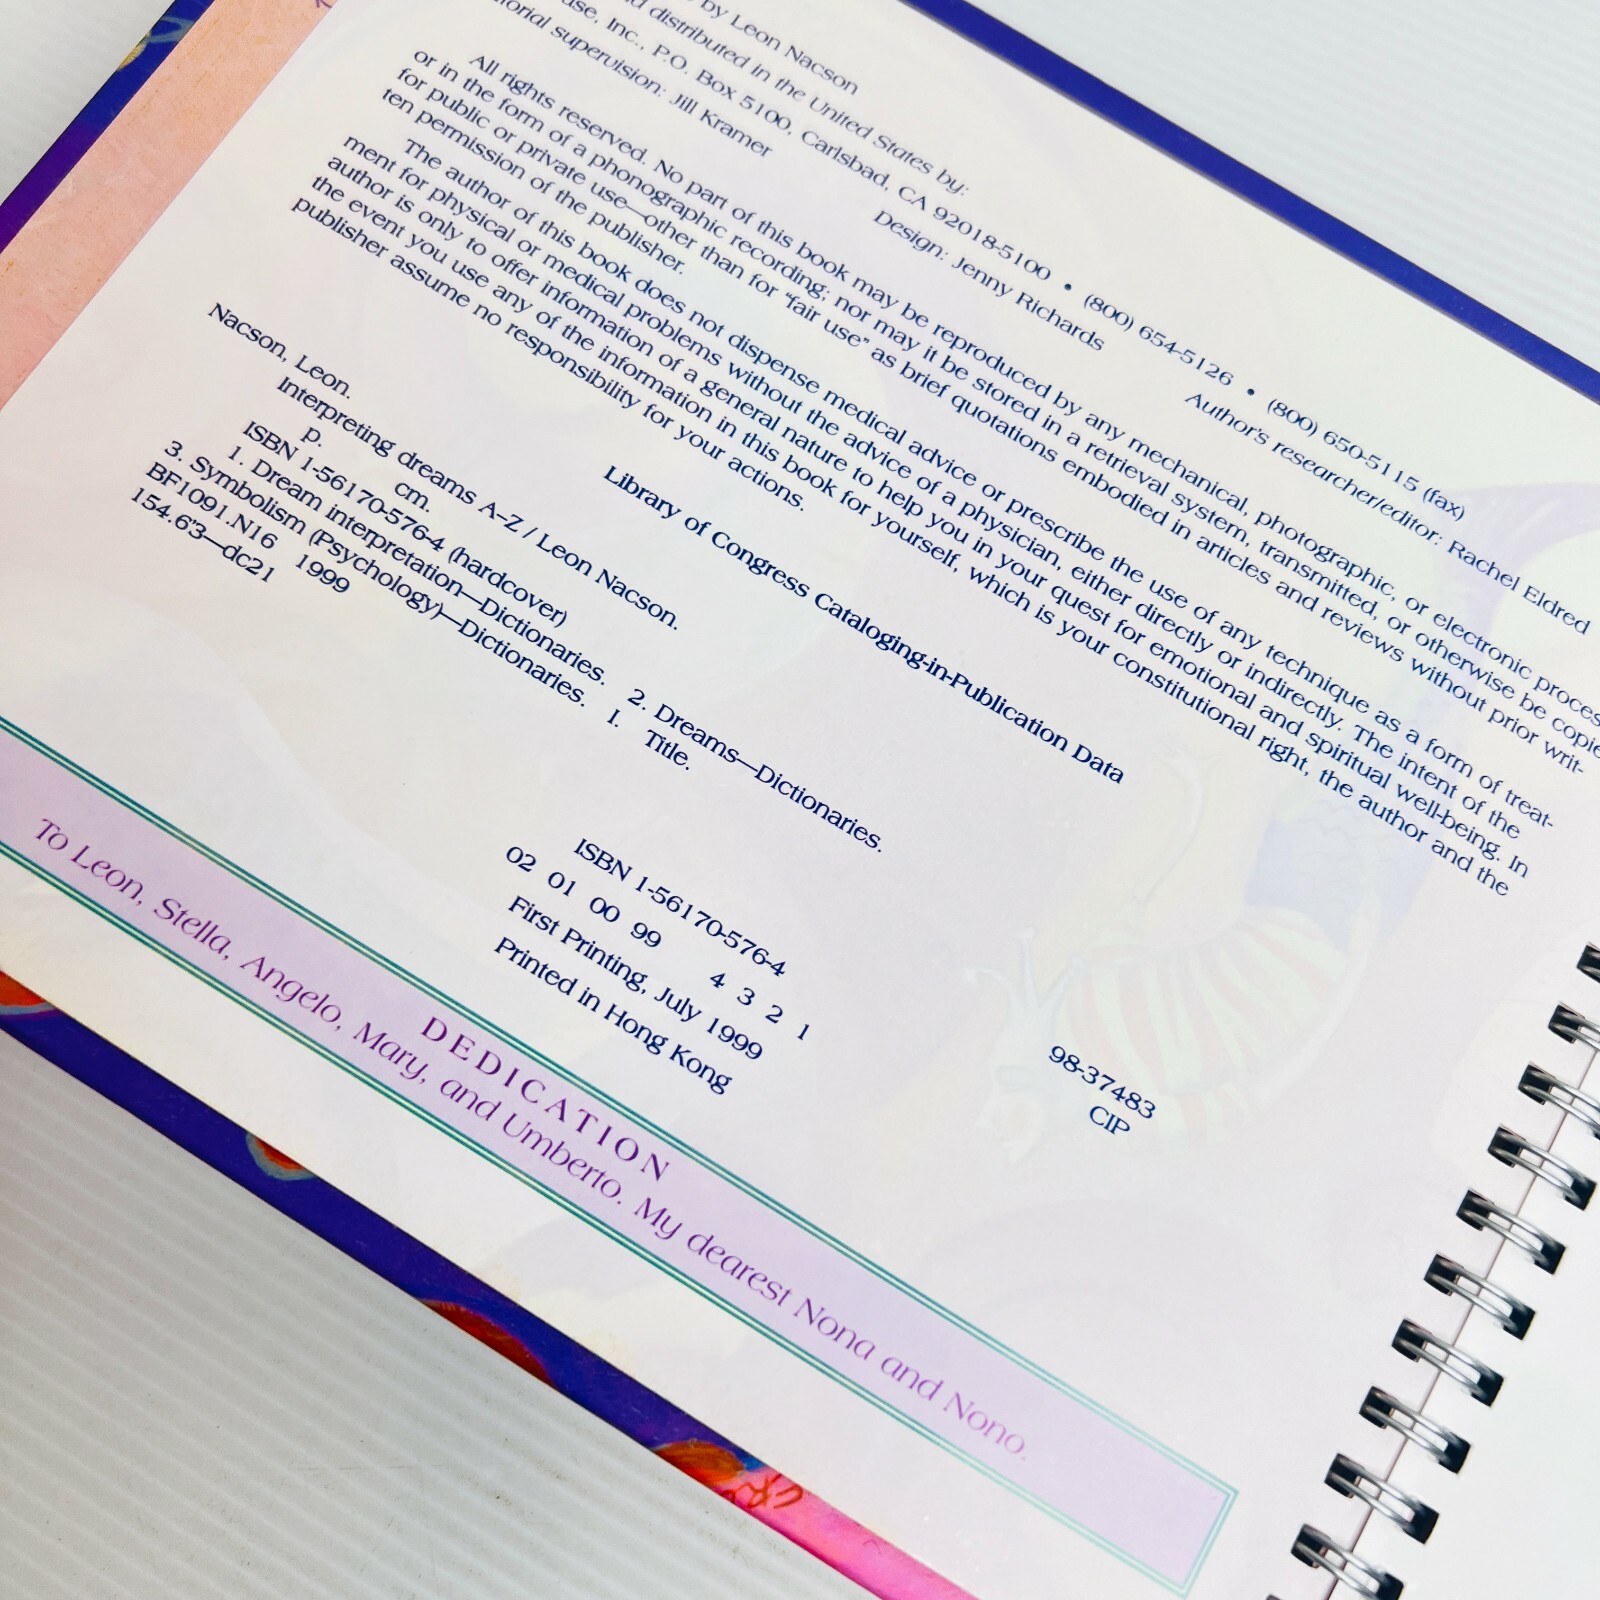 by Leon Nacson
distributed in the United States by:
Inc., P.O. Box 5100, Carlsbad, CA 92018-5100 • (800) 654-5126 • (800) 650-5115 (fax)
supervision: Jill Kramer Design: Jenny Richards Author's researcher/editor: Rachel Eldred
All rights reserved. No part of this book may be reproduced by any mechanical, photographic, or electronic process
or in the form of a phonographic recording; nor may it be stored in a retrieval system, transmitted, or otherwise be copie
for public or private use—other than for "fair use" as brief quotations embodied in articles and reviews without prior writ-
ten permission of the publisher.
The author of this book does not dispense medical advice or prescribe the use of any technique as a form of treat-
ment for physical or medical problems without the advice of a physician, either directly or indirectly. The intent of the
author is only to offer information of a general nature to help you in your quest for emotional and spiritual well-being. In
the event you use any of the information in this book for yourself, which is your constitutional right, the author and the
publisher assume no responsibility for your actions.
Library of Congress Cataloging-in-Publication Data
Nacson, Leon.
Interpreting dreams A–Z / Leon Nacson.
p. cm.
ISBN 1-56170-576-4 (hardcover)
1. Dream interpretation—Dictionaries. 2. Dreams—Dictionaries.
3. Symbolism (Psychology)—Dictionaries. I. Title.
BF1091.N16 1999
154.6'3—dc21
98-37483
CIP
ISBN 1-56170-576-4
02 01 00 99 4 3 2 1
First Printing, July 1999
Printed in Hong Kong
DEDICATION
To Leon, Stella, Angelo, Mary, and Umberto. My dearest Nona and Nono.